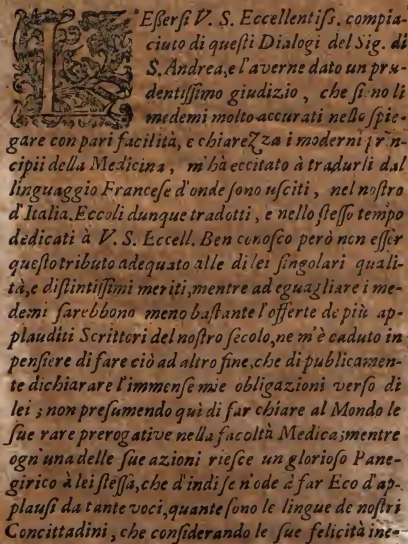 L'Essersi V. S. Eccellentiss. compia-
ciuto di questi Dialogi del Sig. di
S. Andrea, e l'averne dato un pru-
dentissimo giudizio, che siino li
medemi molto accurati nello spie-
gare con pari facilità, e chiarezza i moderni prin-
cipii della Medicina, m'hà eccitato à tradurli dal
linguaggio Francese d'onde sono usciti, nel nostro
d'Italia. Eccoli dunque tradotti, e nello stesso tempo
dedicati à V. S. Eccell. Ben conosco però non esser
questo tributo adequato alle di lei singolari quali-
tà, e distintissimi meriti, mentre ad eguagliare i me-
demi sarebbono meno bastante l'offerte de più ap-
plauditi Scrittori del nostro secolo, ne m'è caduto in
pensiere di fare ciò ad altro fine, che di publicamen-
te dichiarare l'immense mie obligazioni verso di
lei; non presumendo quì di far chiare al Mondo le
sue rare prerogative nella facoltà Medica; mentre
ogn'una delle sue azioni riesce un glorioso Pane-
girico à lei stessa, che d'indi se n'ode à far Eco d'ap-
plausi da tante voci, quante sono le lingue de nostri
Concittadini, che considerando le sue felicità ine-